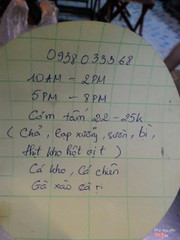 0938033368
10AM – 2PM
5PM – 8PM
Cơm tấm 22-25k
( Chả, lạp xưởng, sườn, bì,
thịt kho hột vịt )
Cá kho, Cá chiên
Gà xào cà ri